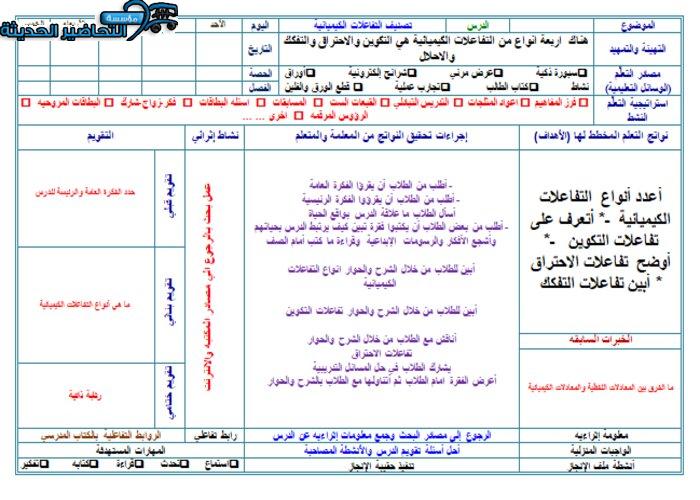 مؤسسة
التحاضير الحديثة
الموضوع
الدرس
تصنيف التفاعلات الكيميائية
اليوم
الأحد
التهيئة والتمهيد
هناك اربعة انواع من التفاعلات الكيميائية هي التكوين والاحتراق والتفكك
والاحلال
التاريخ
مصادر التعلم
(الوسائل التعليمية)
سبورة ذكية
عرض مرئي
شرائح إلكترونية
أوراق
نشاط
كتاب الطالب
تجارب عملية
قطع الورق والفلين
الحصة
الفصل
استراتيجية التعلم
النشط
فرز المفاهيم
اعواد المثلجات
التدريس التبادلي
القبعات الست
المسابقات
اسئله البطاقات
فكر-زواج-شارك
البطاقات المروحيه
الرؤوس المرقمه
اخرى ... ...
نواتج التعلم المخطط لها (الأهداف)
إجراءات تحقيق النواتج من المعلمة والمتعلم
نشاط إثرائي
التقويم
أعدد أنواع التفاعلات
الكيميائية -* أتعرف على
تفاعلات التكوين -*
أوضح تفاعلات الاحتراق
* أبين تفاعلات التفكك
الخبرات السابقه
ما الفرق بين المعادلات اللفظية والمعادلات الكيميائية
- أطلب من الطلاب أن يقرؤا الفكرة العامة
- أطلب من الطلاب أن يقرؤوا الفكرة الرئيسية
أسأل الطلاب ما علاقة الدرس بواقع الحياة
- أطلب من بعض الطلاب أن يكتبوا فقرة تبين كيف يرتبط الدرس بحياتهم
وأشجع الأفكار والرسومات الإبداعية وقراءة ما كتب أمام الصف
أبين للطلاب من خلال الشرح والحوار انواع التفاعلات
الكيميائية
أبين للطلاب من خلال الشرح والحوار تفاعلات التكوين
أناقش مع الطلاب من خلال الشرح والحوار
تفاعلات الاحتراق
يشارك الطلاب في حل المسائل التدريبية
أعرض الفقرة امام الطلاب ثم أتناولها مع الطلاب بالشرح والحوار
عمل بحث بالرجوع الي مصادر المكتبه والانترنت
تقويم قبلي
حدد الفكرة العامة والرئيسة للدرس
تقويم بنائي
ما هي أنواع التفاعلات الكيميائية
تقويم ختامي
رقابة ذاتية
معلومة إثرائيه
الرجوع إلى مصادر البحث وجمع معلومات إثرائيه عن الدرس
رابط تفاعلي
الروابط التفاعلية بالكتاب المدرسي
الواجبات المنزلية
أحل أسئلة تقويم الدرس والأنشطة المصاحبة
المهارات المستهدفة
أنشطة ملف الإنجاز
تنفيذ حقيبة الإنجاز
استماع
تحدث
قراءة
كتابه
تفكير